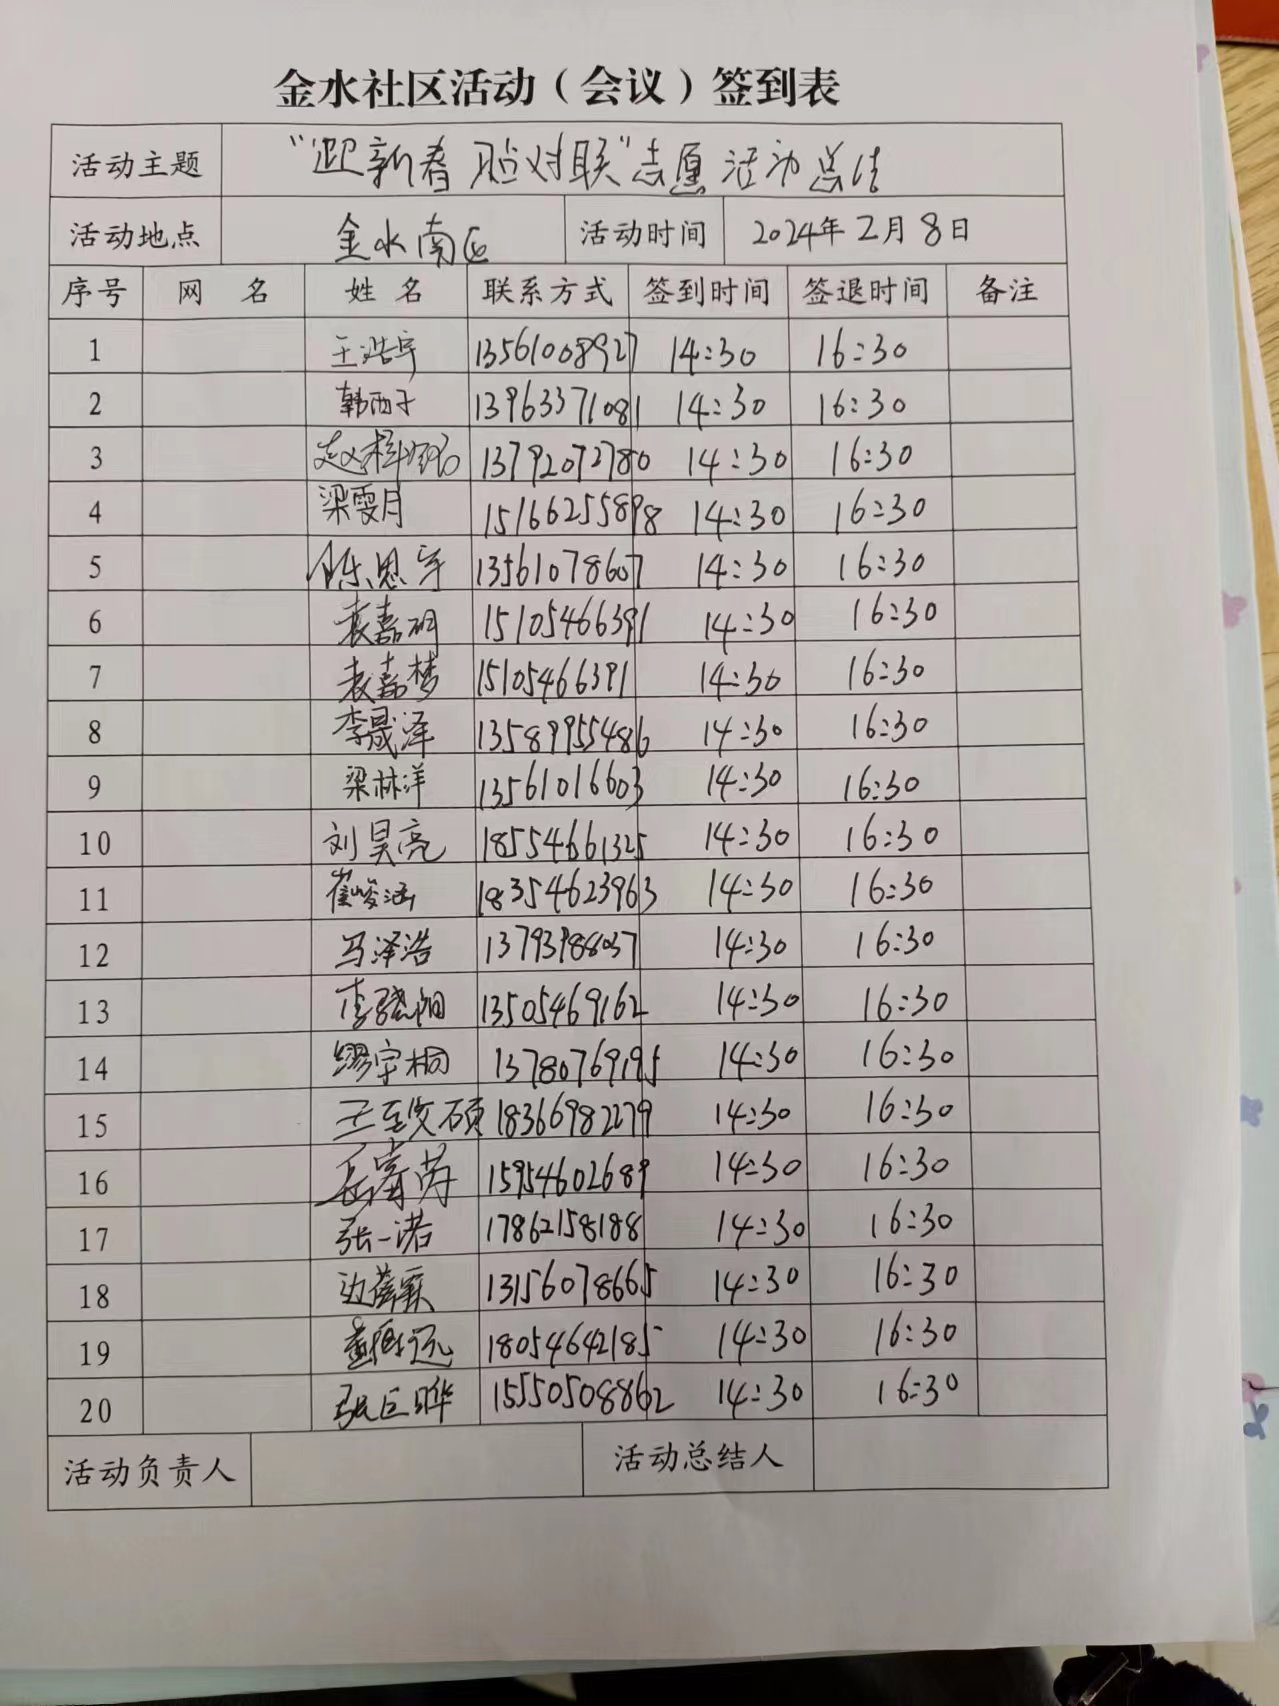 金水社区活动（会议）签到表
活动主题 “迎新春 贴对联”志愿活动总结
活动地点 金水南区 活动时间 2024年2月8日
序号 网 名 姓 名 联系方式 签到时间 签退时间 备注
1 王浩宇 13561008927 14:30 16:30
2 韩雨子 13963371081 14:30 16:30
3 13792072780 14:30 16:30
4 梁雯月 15166255898 14:30 16:30
5 陈思宇 13561078607 14:30 16:30
6 袁嘉明 15105466391 14:30 16:30
7 袁嘉梦 15105466391 14:30 16:30
8 李晟泽 13589955486 14:30 16:30
9 梁林洋 13561016603 14:30 16:30
10 刘昊亮 18554661325 14:30 16:30
11 崔峻涵 18354623963 14:30 16:30
12 马泽浩 13793988037 14:30 16:30
13 李骁阳 13505469162 14:30 16:30
14 缪宇桐 13780769195 14:30 16:30
15 18366982279 14:30 16:30
16 15954602689 14:30 16:30
17 张一诺 17862158188 14:30 16:30
18 13156078665 14:30 16:30
19 18054642185 14:30 16:30
20 张巨晔 15550508862 14:30 16:30
活动负责人 活动总结人